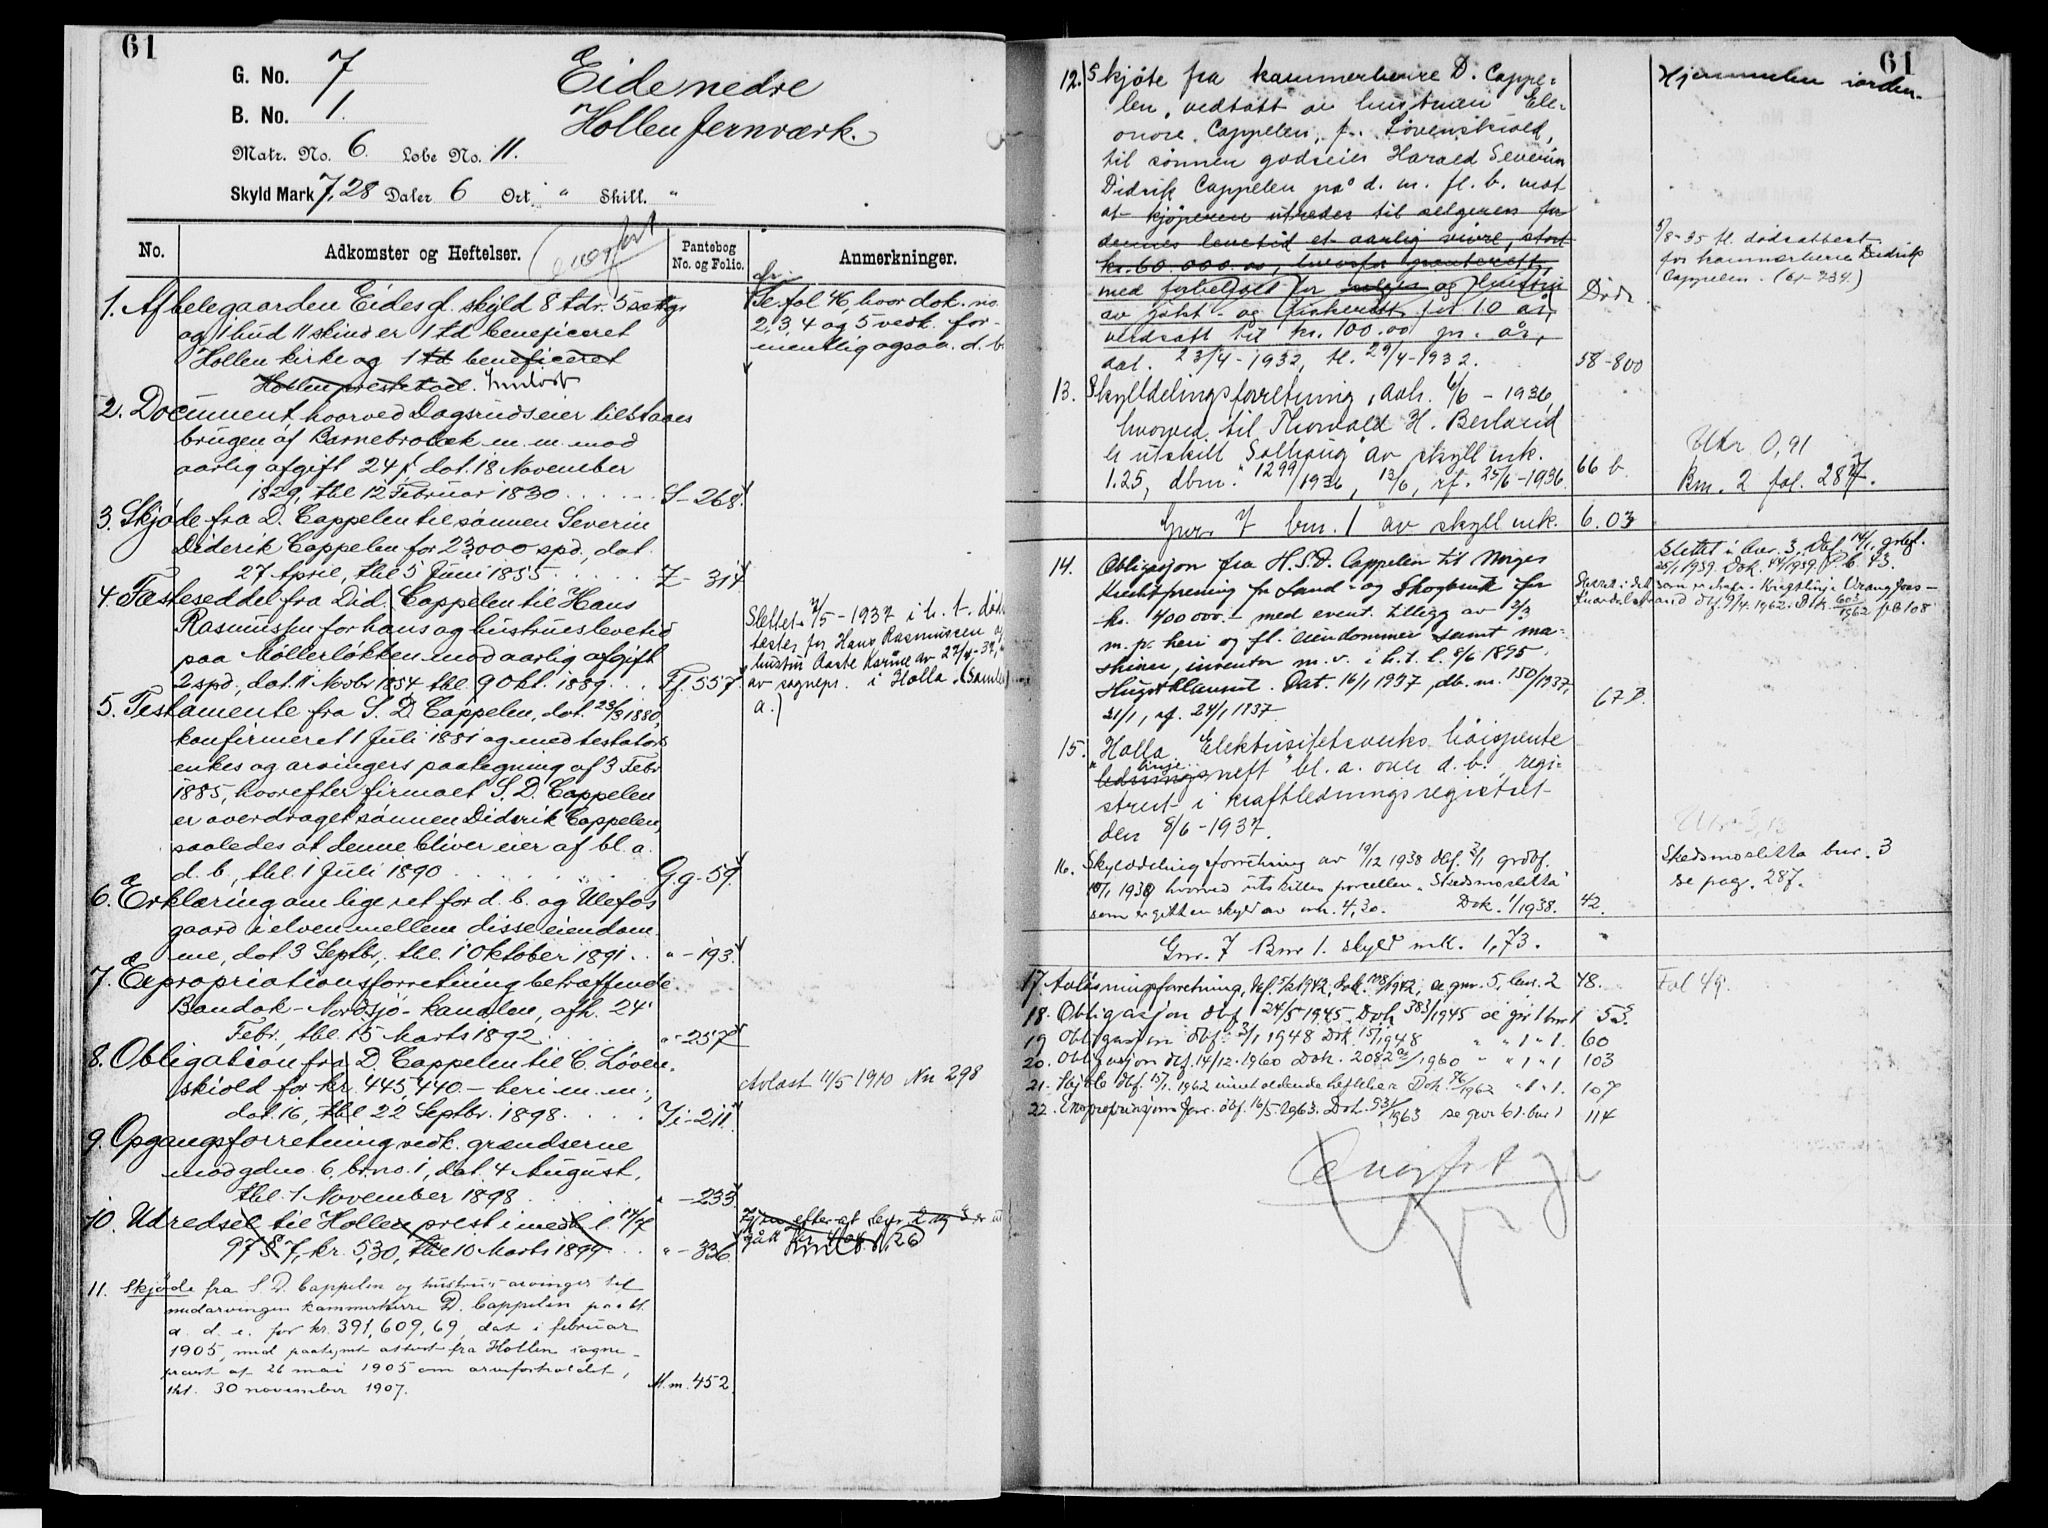 61
G. No. 7
Eide nedre
B. No. 1.
Hollen Jernværk.
Matr. No. 6. Løbe No. 11.
Skyld Mark 7,28 Daler 6 Ort. " Skill. "
No.
Adkomster og Heftelser.
Pantebog No. og Folio.
Anmerkninger.
1. Af belegaarden Eides gl. skyld 8 tdr. 5 sættgr
og 1 hud 11 skind er 1 td beneficeret
Hollen kirke og 1 td beneficeret
Hollen prestebol. Indløst
Se fol 46, hvor dok. no.
2, 3, 4 og 5 vedk. for-
mentlig ogsaa d. b.
2. Document hvorved Dagsrudseier tilstaaes
brugen af Barnebrolæk m. m. mod
aarlig afgift 24 f, dat. 18 November
1829, thl 12 Februar 1830 S-268.
3. Skjøde fra D. Cappelen til sønnen Severin
Diderik Cappelen for 23,000 spd, dat.
27 April, thl 5 Juni 1855 Z-314
4. Fæsteseddel fra Did. Cappelen til Hans
Rasmussen for hans og hustrues levetid
paa Møllerløkken mod aarlig afgift
2 spd, dat. 11 Novbr 1854, thl. 9 Okt. 1889. Ff. 557.
Slettet 4/5-1937 i h. t. døds
tester for Hans Rasmussen og
hustru Aaste Karine av 27/4-37,
av sognepr. i Holla. (Samlem
a.)
5. Testamente fra S. D. Cappelen, dat. 23/3 1880,
konfirmeret 1 Juli 1881 og med testators
enkes og arvingers paategning af 3 Febr
1885, hvorefter firmaet S. D. Cappelen
er overdraget sønnen Diderik Cappelen,
saaledes at denne bliver eier af bl. a.
d. b., thl. 1 Juli 1890 Gg-59.
6. Erklæring om lige ret for d. b. og Ulefos
gaard i elven mellem disse eiendom
me, dat 3 Septbr, thl. 1 Oktober 1891 " - 193.
7. Expropriationsforretning betræffende
Bandak-Nordsjø-kanalen, afh. 24
Febr, thl. 15 Marts 1892 " - 257
8. Obligation fra D. Cappelen til C. Løven-
skiold for kr. 445,440 – heri m. m.,
dat. 16, thl 22 Septbr. 1898 Ii-211.
Avlæst 11/5 1910 No 298
9. Opgangsforretning vedk. grændserne
mod gdno. 6, br.no. 1, dat. 4 August,
thl. 1 November 1898 " - 233
10. Udredsel til Hollen prest i medh. l. 14/7
97 § 7, kr. 5,30, thl 10 Marts 1899 " - 336
11. Skjøde fra S. D. Cappelen og hustrus arvinger til
medarvingen kammerherre D. Cappelen paa bl.
a. d. e. for kr. 391,609,69, dat i februar
1905, med paategnt attest fra Hollen sogne-
prest af 26 mai 1905 om arveforholdet,
thl. 30 november 1907. M.m. 452
61
12. Skjøte fra kammerherre D. Cappe-
len, vedtatt av hustruen Ele-
onore Cappelen, f. Løvenskiold,
til sønnen godseier Harald Severin
Didrik Cappelen på d. m. fl. b. mot
at kjøperen utreder til selgeren for
dennes levetid et aarlig vivre, stort
kr. 60.000.00, hvorfor panterett,
med forbehold for selger og hustru
av jakt- og fiskerett fit 10 år,
verdsatt til kr. 100.00 pr. år,
dat. 23/4-1932, tl. 29/4-1932. 58-800
Hjemmelen iorden.
3/8-35 tl. dødsattest
for kammerherre Didrik
Cappelen. (61-734)
Døde
13. Skylddelingsforretning, avh. 6/6-1936,
hvorved til Thorvald H. Berland
er utskilt "Solhaug" av skyll mk.
1.25, dbnr. 1299/1936, 13/6, rf. 25/6-1936. 66 b
Utkr 0,91
Bm. 2 fol. 287.
Gnr. 7 bnr. 1 av skyll mk. 6.03
14. Obligasjon fra H.S.D. Cappelen til Norges
Kreditforening for Land- og Skogbruk for
kr. 400 000.- med event. tillegg av 2/3
m. p. heri og fl. eiendommer samt ma-
skiner, inventar m. v. i h. t. l. 8/6 1895.
Dat. 16/1 1937, db. nr. 150/1937,
21/1, rf. 24/1 1937. 67 B.
Slettet i bnr. 3.
15. Holla Elektrisitetsverks høispente
linje
ledningsnett bl. a. over d. b., regi-
strert i kraftledningsregistret
den 8/6-1937.
16. Skylddelingsforretning av 19/12 1938 dbf. 3/1 grdbf.
10/1 1939 hvorved utskilles parcellen "Skedsmosletta"
som er gitt en skyld av mk. 4,30. Dok. 1/1938. 42.
Skedsmosletta bnr. 3
se pag. 287.
Gnr. 7 Bnr 1. skyld mk. 1,73.
17. Avløsningsforretning, se gnr. 5, bnr. 2 48. Fol 49.
18. Obligasjon dbf. 24/5 1945. Dok 383/1945 se gnr 1 bnr 1 53.
19 Obligasjon dbf. 3/1 1948 Dok 15/1948 " " 1 " 1. 60
20. Obligasjon dbf. 14/12-1960 Dok. 2082/1960 " " 1 " 1 103
21. Skjøte dbf. 15/1. 1962 inneholdende heftelser Dok 76/1962 " 1 " 1. 107
22. Ekspropriasjonsforr. dbf. 16/5. 1963. Dok. 931/1963 se gnr 61. bnr 1 114
Overført